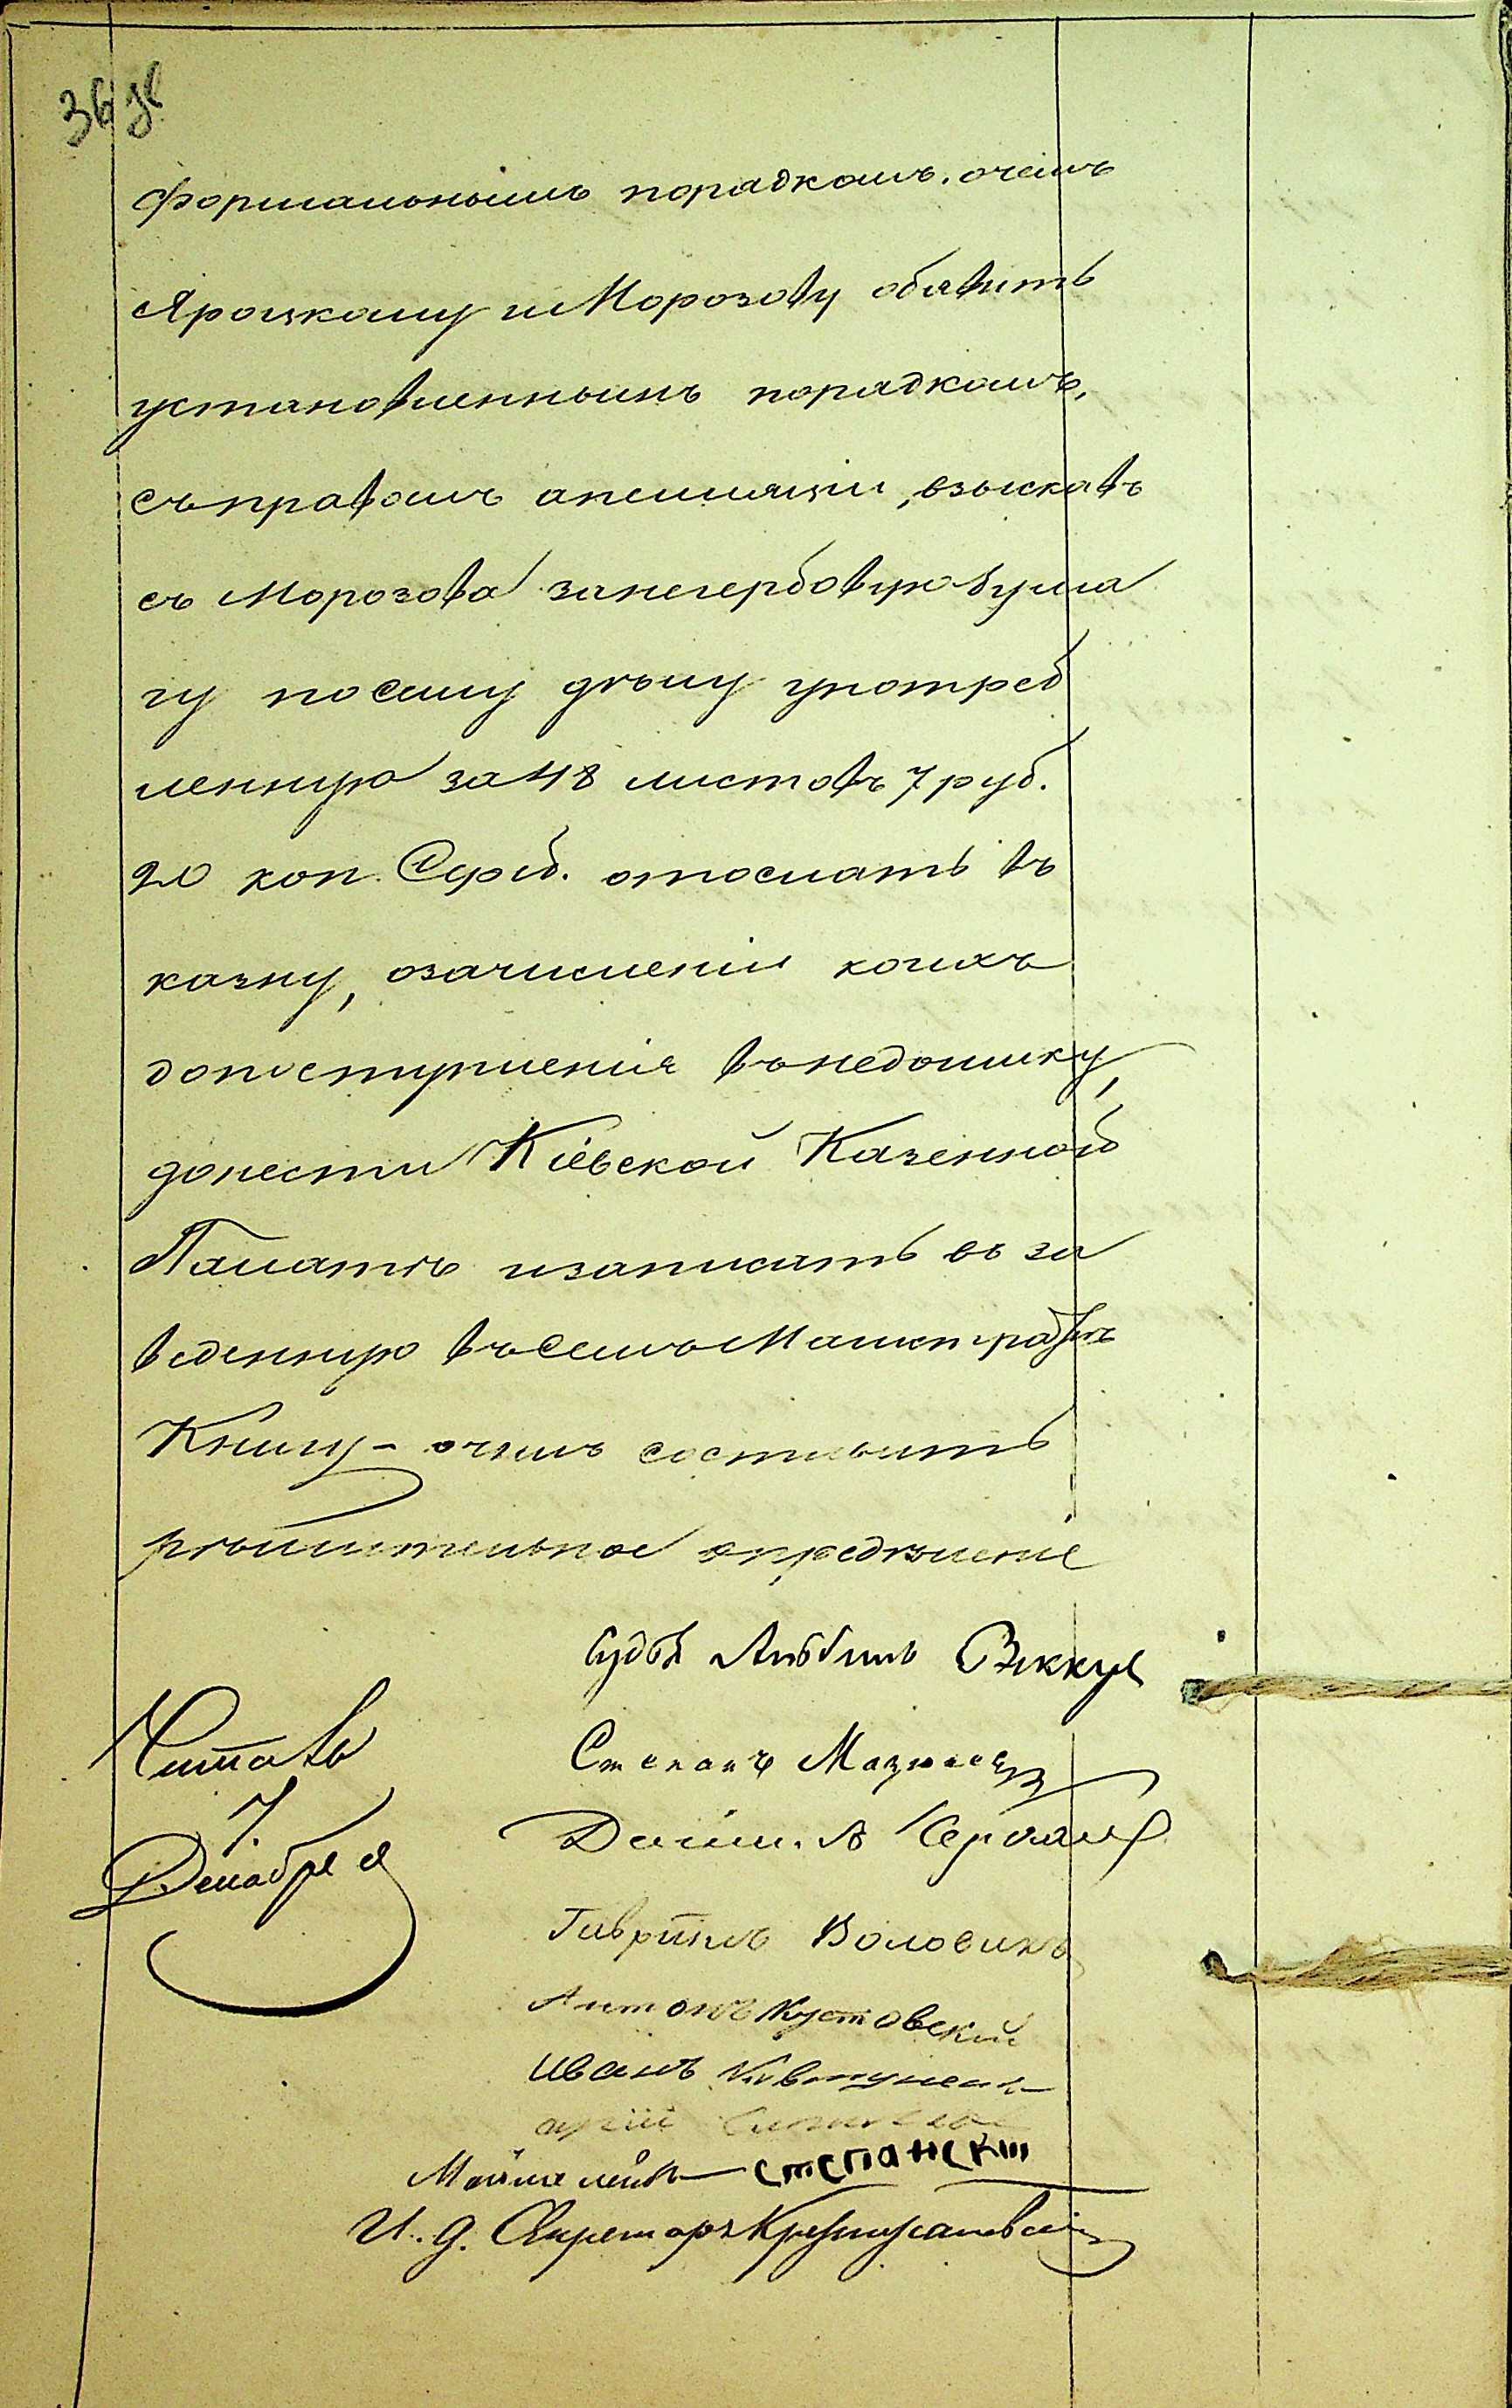 36
формальнымъ порядкомъ. очемъ
Яроцкому и Морозову обявить
установленнымъ порядкомъ,
съ правомъ апелляціи, взыскавъ
съ Морозова за негербовую бума
гу по сему дѣлу употреб
ленную за 48 листовъ 7 руб.
20 коп. Сереб. отослать въ
казну, о зачисленіи коихъ
до поступленія въ недоимку,
донести Кіевской Казенной
Палатѣ и записать въ за
веденную въ семъ Магистратѣ
Книгу – о чемъ составить
рѣшительное опредѣленіе
Судья Альбинъ
Степанъ
Гаврилъ Воловикъ
Антонъ Кустовскій
Иванъ
Степанскій
И. д. Секретаря
Читалъ
7
Декабря